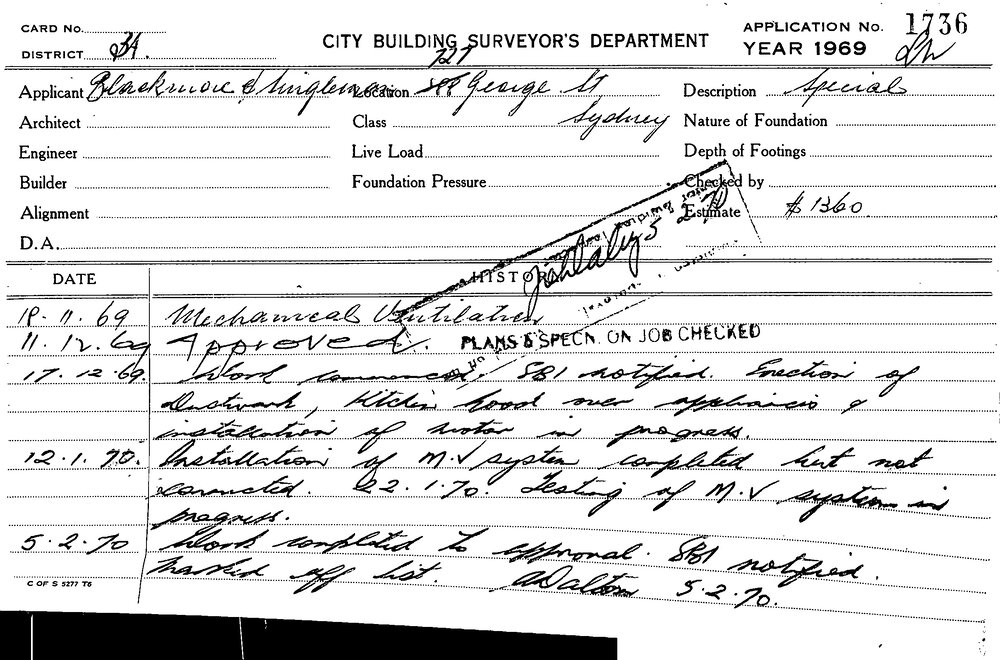 CARD No.
DISTRICT 34.
CITY BUILDING SURVEYOR'S DEPARTMENT
APPLICATION No. 1736
YEAR 1969
727
Applicant Blackmore & Singleman
Location George St
Sydney
Description Special
Architect
Class
Nature of Foundation
Engineer
Live Load
Depth of Footings
Builder
Foundation Pressure
Checked by
Alignment
Estimate $ 1360.
D.A.
5 2 70
DATE
HISTORY
18.11.69 Mechanical Ventilation
11.12.69 Approved.
PLANS & SPECN. ON JOB CHECKED
17.12.69. Work commenced. SBI notified. Erection of
Ductwork, Kitchen hood over appliances &
installation of motor in progress.
12.1.70. Installation of M.V system completed but not
connected. 22.1.70. Testing of M.V system in
progress.
5.2.70 Work completed to approval. SBI notified.
marked off list. ADalton 5.2.70.
C OF S 5277 T6